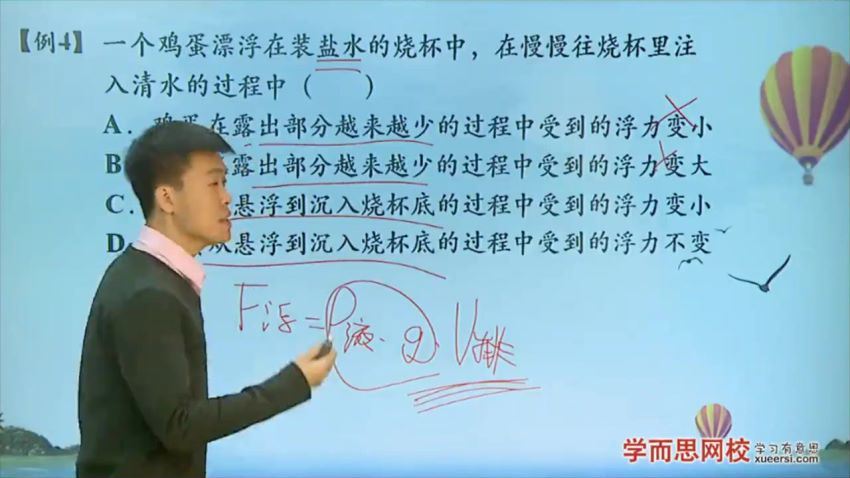 【例4】一个鸡蛋漂浮在装盐水的烧杯中，在慢慢往烧杯里注
入清水的过程中（ ）
A．鸡蛋在露出部分越来越少的过程中受到的浮力变小
B 露出部分越来越少的过程中受到的浮力变大
C．悬浮到沉入烧杯底的过程中受到的浮力变小
D．从悬浮到沉入烧杯底的过程中受到的浮力不变
F浮=ρ液·g·V排
学而思网校 学习有意思
xueersi.com